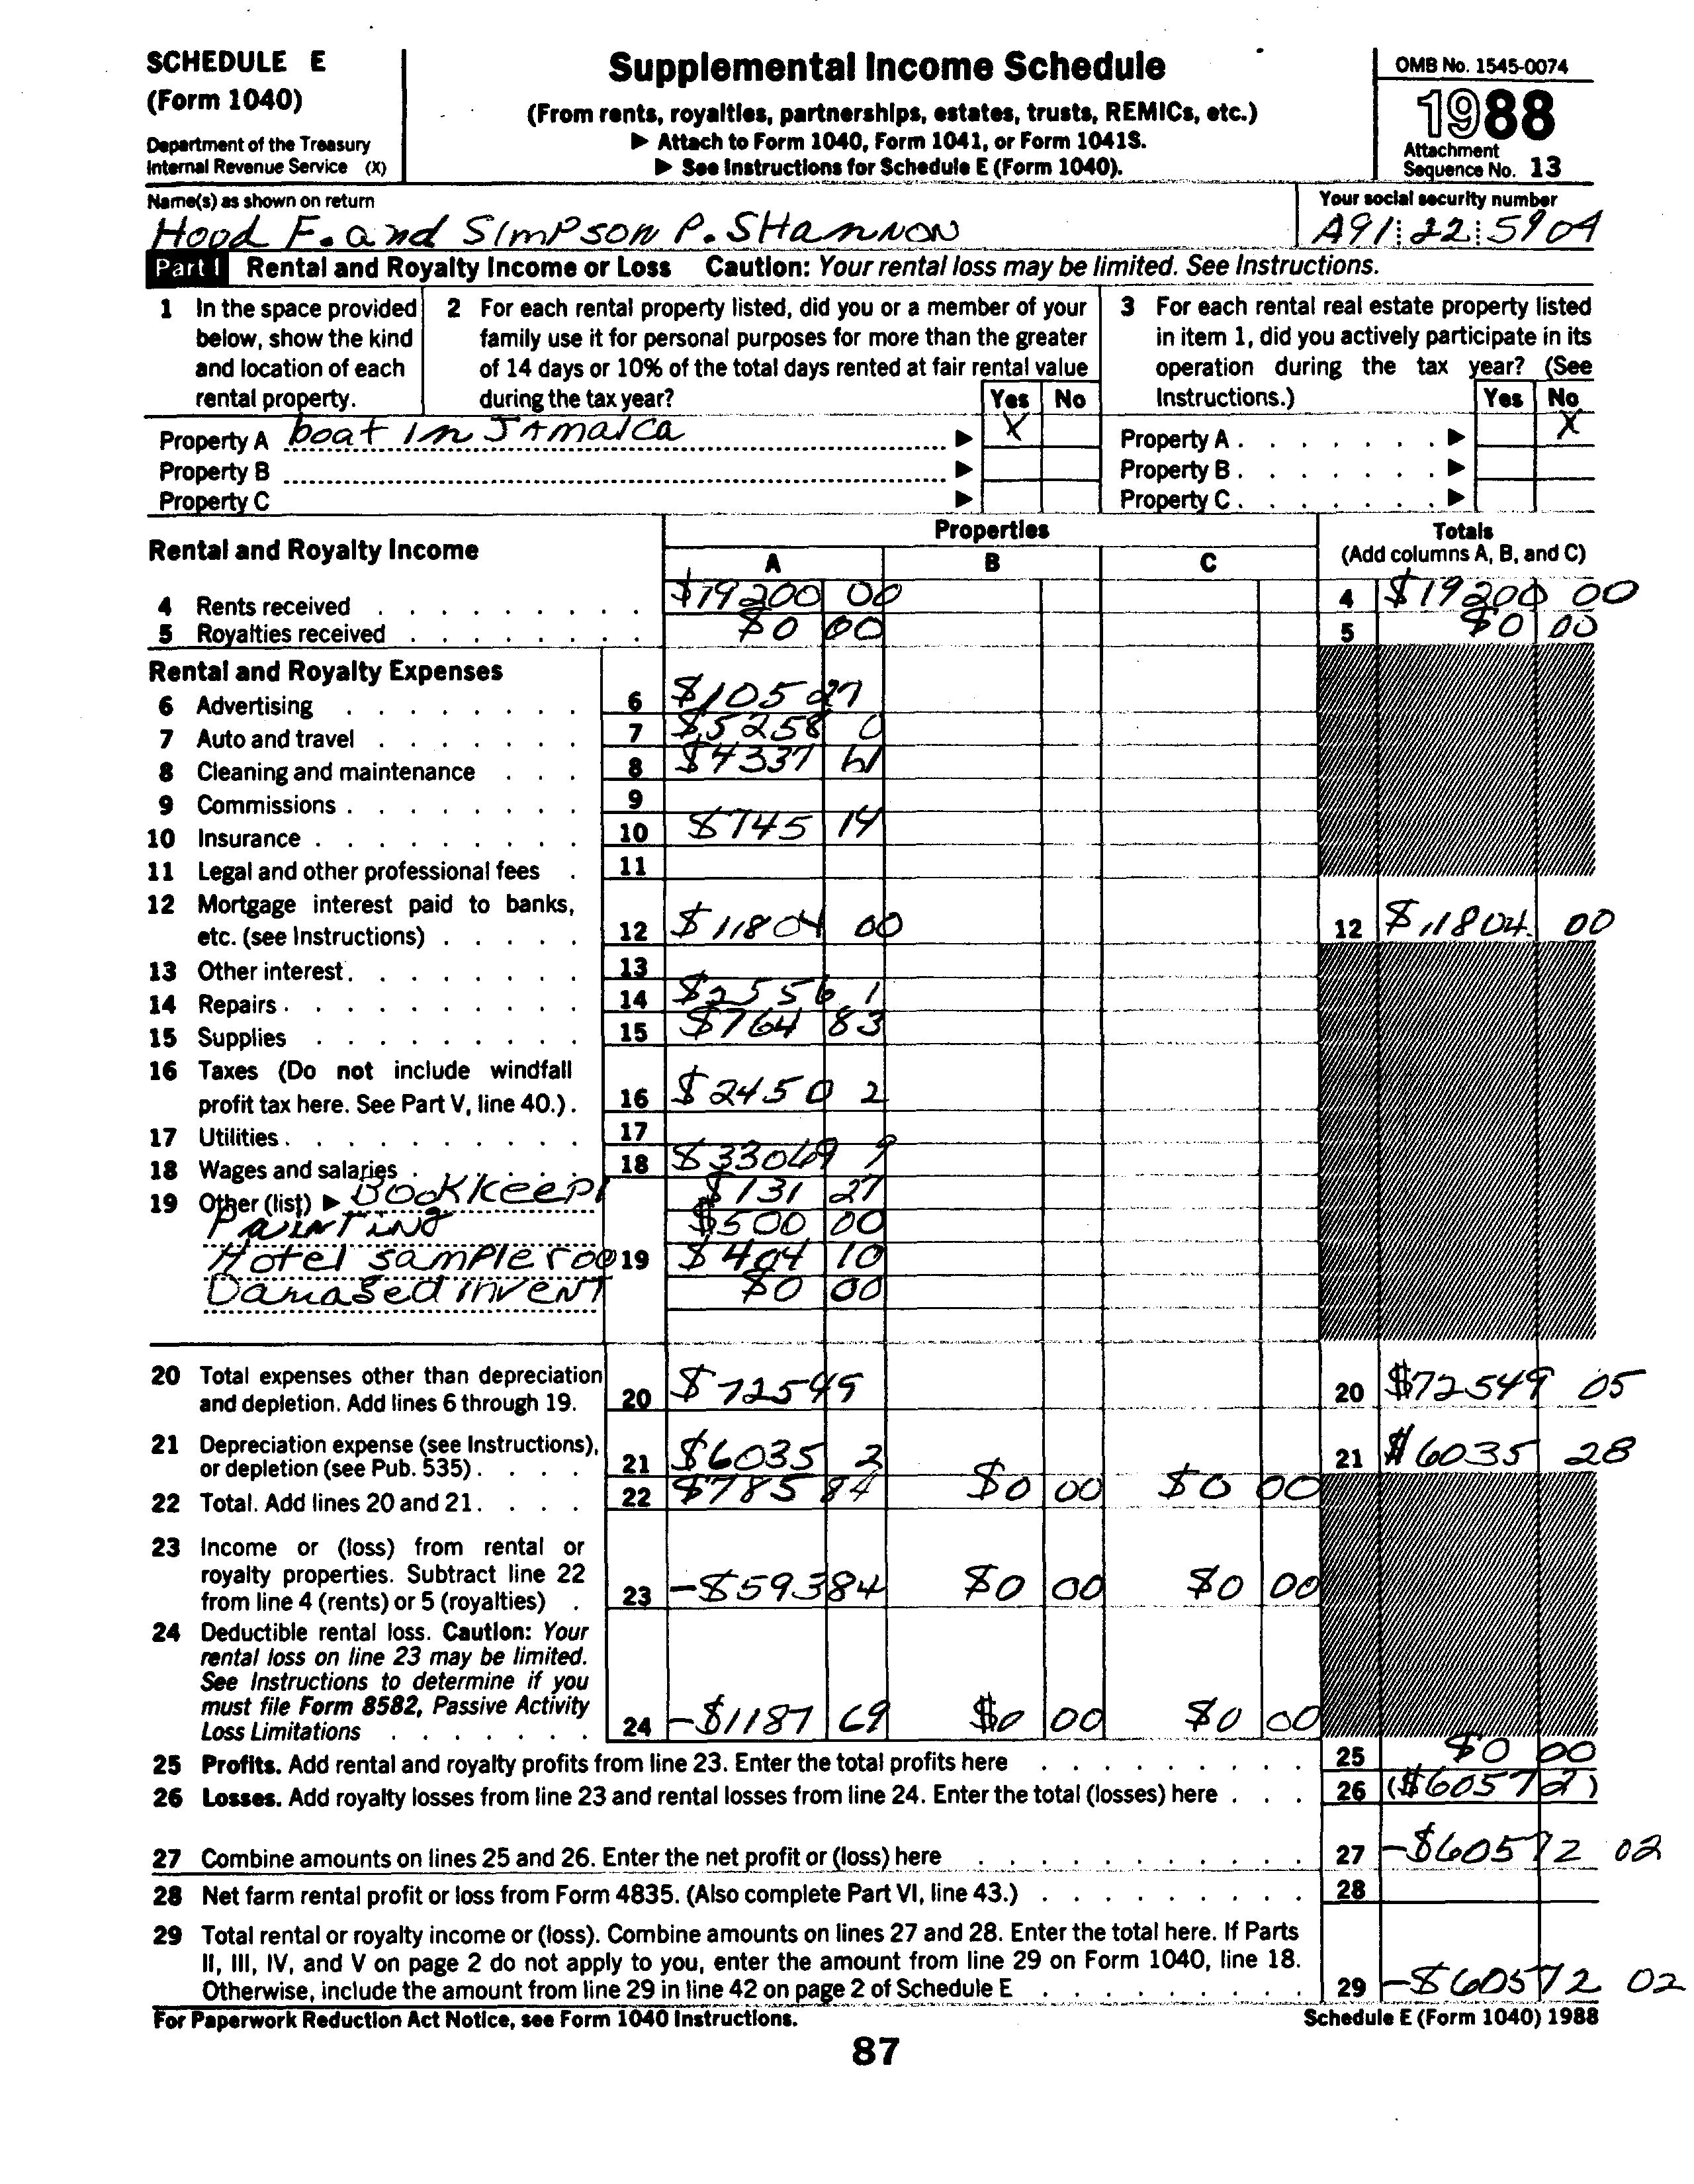 SCHEDULE E
(Form 1040)
Department of the Treasury
Internal Revenue Service (X)
Supplemental Income Schedule
(From rents, royalties, partnerships, estates, trusts, REMICs, etc.)
▶ Attach to Form 1040, Form 1041, or Form 1041S.
▶ See Instructions for Schedule E (Form 1040).
OMB No. 1545-0074
1988
Attachment
Sequence No. 13
Name(s) as shown on return
Hood F. and Simpson P. Shannon
Your social security number
A91 22 5904
Part I Rental and Royalty Income or Loss Caution: Your rental loss may be limited. See Instructions.
1 In the space provided
below, show the kind
and location of each
rental property.
2 For each rental property listed, did you or a member of your
family use it for personal purposes for more than the greater
of 14 days or 10% of the total days rented at fair rental value
during the tax year? Yes No
3 For each rental real estate property listed
in item 1, did you actively participate in its
operation during the tax year? (See
Instructions.) Yes No
Property A boat in Jamaica ▶ X Property A . . . . . . . ▶ X
Property B ▶ Property B . . . . . . . ▶
Property C ▶ Property C . . . . . . . ▶
Rental and Royalty Income
Properties
A B C
Totals
(Add columns A, B, and C)
4 Rents received $19200 00 4 $19200 00
5 Royalties received $0 00 5 $0 00
Rental and Royalty Expenses
6 Advertising 6 $105 27
7 Auto and travel 7 $5258 0
8 Cleaning and maintenance 8 $4337 61
9 Commissions 9
10 Insurance 10 $745 14
11 Legal and other professional fees 11
12 Mortgage interest paid to banks,
etc. (see Instructions) 12 $11804 00 12 $11804 00
13 Other interest 13
14 Repairs 14 $2556 1
15 Supplies 15 $764 83
16 Taxes (Do not include windfall
profit tax here. See Part V, line 40.) 16 $2450 2
17 Utilities 17
18 Wages and salaries 18 $33049 9
19 Other (list) ▶ Bookkeepi $131 27
Painting $500 00
Hotel sample roo 19 $404 10
Damased invent $0 00
20 Total expenses other than depreciation
and depletion. Add lines 6 through 19. 20 $72549 20 $72549 05
21 Depreciation expense (see Instructions),
or depletion (see Pub. 535) 21 $6035 2 21 $6035 28
22 Total. Add lines 20 and 21 22 $785 84 $0 00 $0 00
23 Income or (loss) from rental or
royalty properties. Subtract line 22
from line 4 (rents) or 5 (royalties) 23 -$59384 $0 00 $0 00
24 Deductible rental loss. Caution: Your
rental loss on line 23 may be limited.
See Instructions to determine if you
must file Form 8582, Passive Activity
Loss Limitations 24 -$1187 69 $0 00 $0 00
25 Profits. Add rental and royalty profits from line 23. Enter the total profits here 25 $0 00
26 Losses. Add royalty losses from line 23 and rental losses from line 24. Enter the total (losses) here 26 ($60572)
27 Combine amounts on lines 25 and 26. Enter the net profit or (loss) here 27 -$60572 02
28 Net farm rental profit or loss from Form 4835. (Also complete Part VI, line 43.) 28
29 Total rental or royalty income or (loss). Combine amounts on lines 27 and 28. Enter the total here. If Parts
II, III, IV, and V on page 2 do not apply to you, enter the amount from line 29 on Form 1040, line 18.
Otherwise, include the amount from line 29 in line 42 on page 2 of Schedule E 29 -$60572 02
For Paperwork Reduction Act Notice, see Form 1040 Instructions. Schedule E (Form 1040) 1988
87